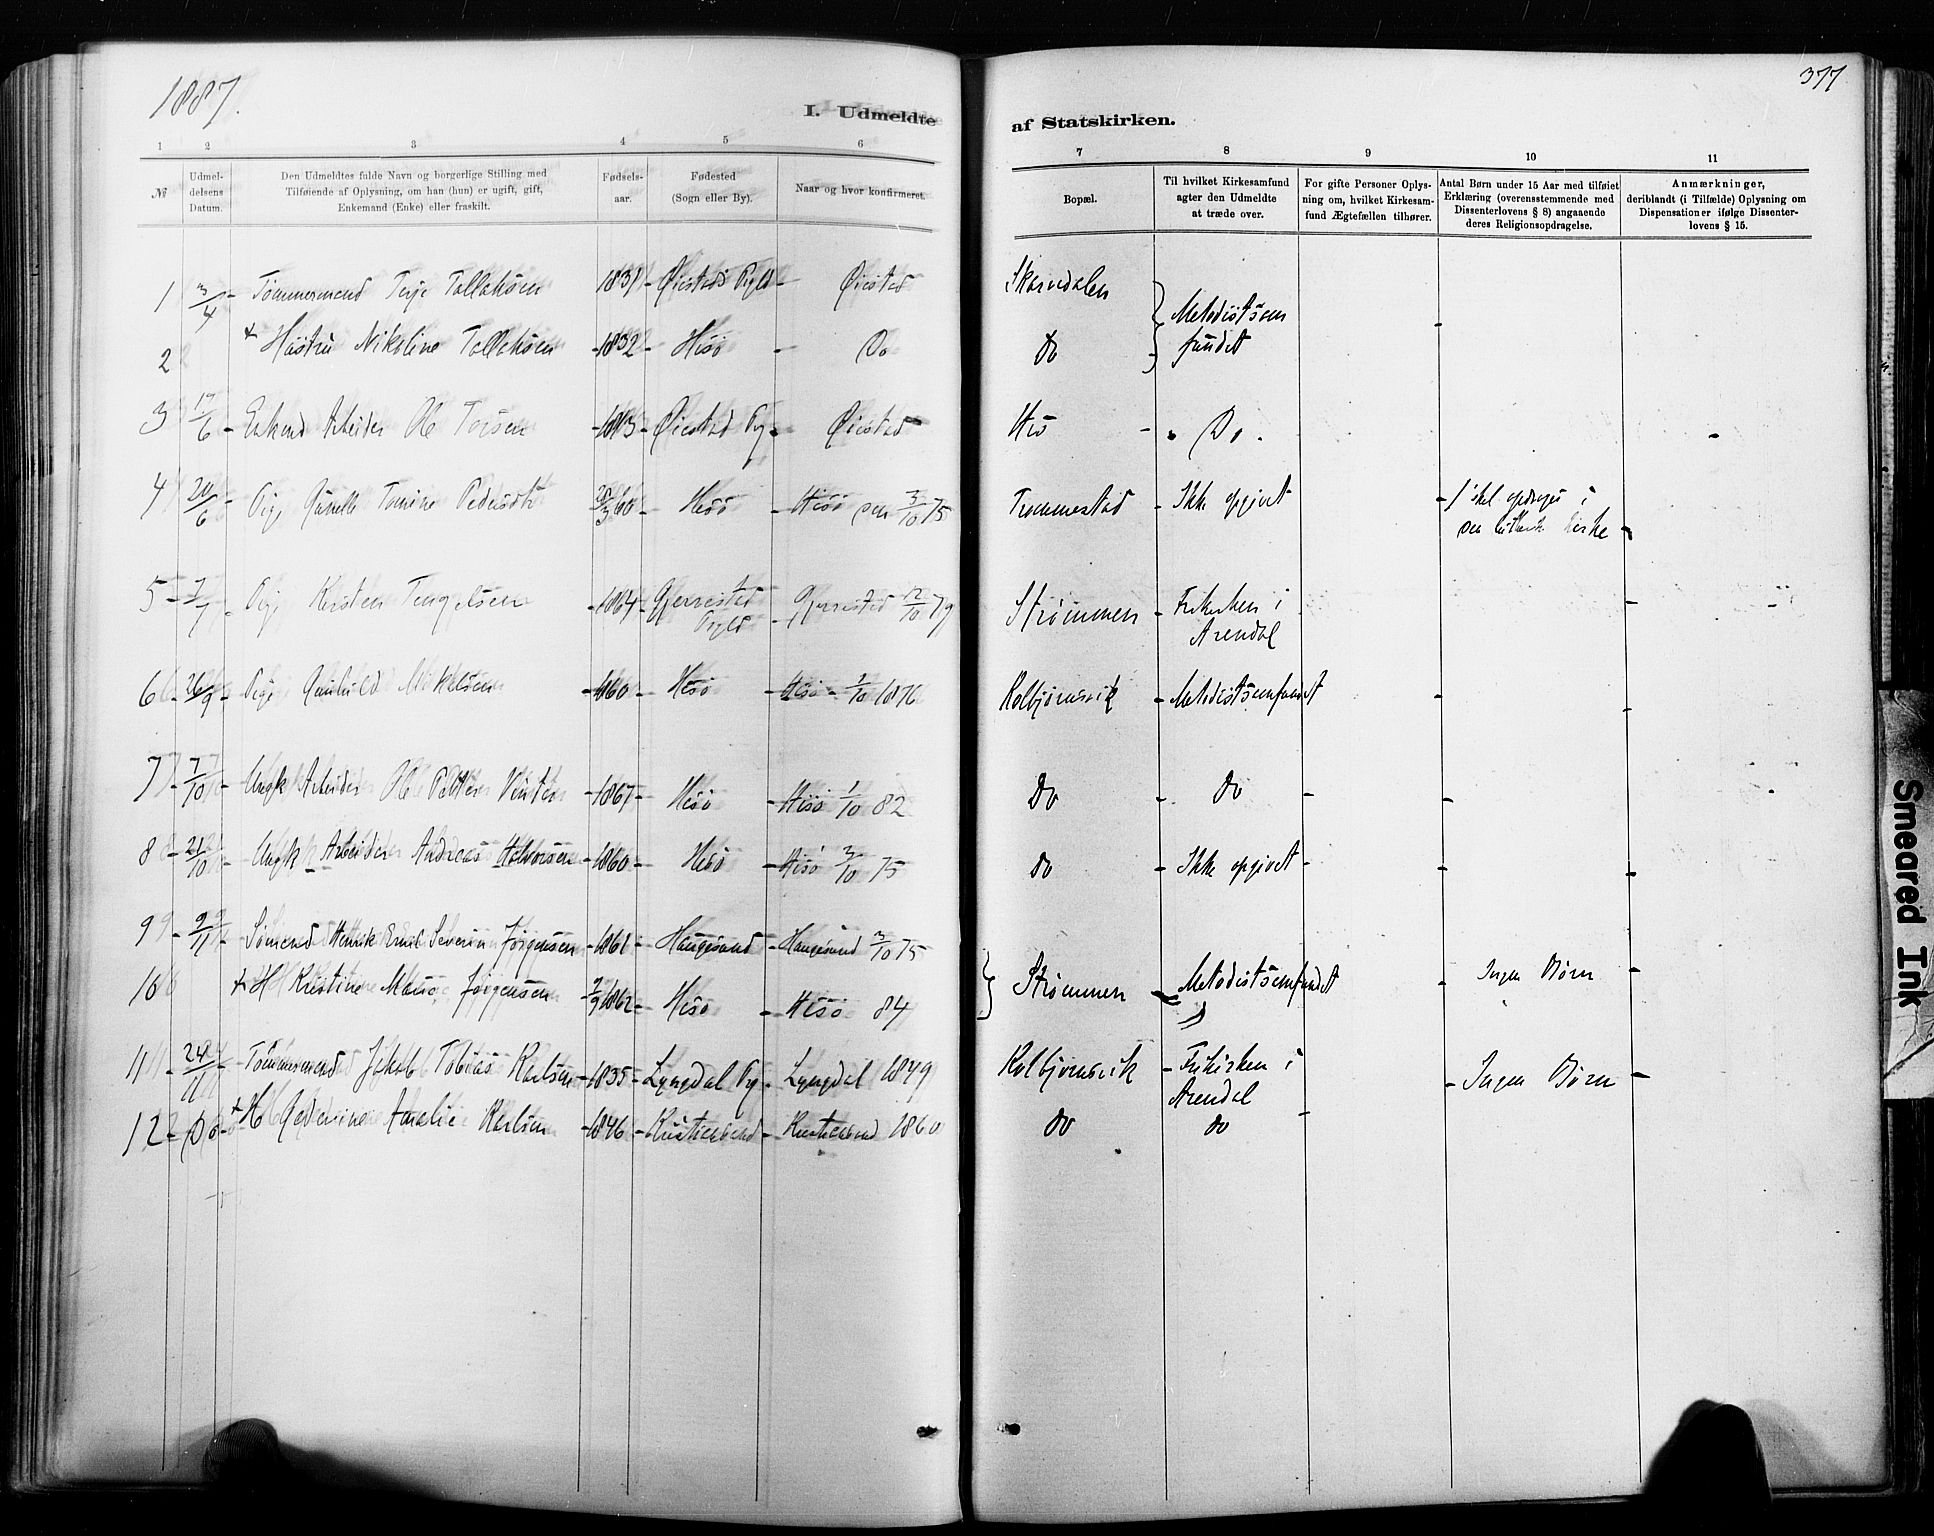 1887.
377
I. Udmeldte af Statskirken.
1 2 3 4 5 6 7 8 9 10 11
№
Udmeldelsens Datum.
Den Udmeldtes fulde Navn og borgerlige Stilling med
Tilføiende af Oplysning, om han (hun) er ugift, gift,
Enkemand (Enke) eller fraskilt.
Fødsels-
aar.
Fødested
(Sogn eller By).
Naar og hvor konfirmeret.
Bopæl.
Til hvilket Kirkesamfund
agter den Udmeldte
at træde over.
For gifte Personer Oplys-
ning om, hvilket Kirkesam-
fund Ægtefællen tilhører.
Antal Børn under 15 Aar med tilføiet
Erklæring (overensstemmende med
Dissenterlovens § 8) angaaende
deres Religionsopdragelse.
Anmærkninger,
deriblandt (i Tilfælde) Oplysning om
Dispensationer ifølge Dissenter-
lovens § 15.
1 3/4 - Tømmermand Terje Tallaksen 1831 - Øiestads Prgld - Øiestad Skarvdalen Metodistsam
2 Hustru Nikoline Tallaksen - 1832 - Hisö - Do Do fundet
3 17/6 - Enkemd Arbeider Ole - Øiestad Prg - Øiestad - Do -
4 20/6 - Pige Tomine 60 - Hisö - Hisö den 3/10 75 Trommestad - Ikke opgivet - 1 skal opdrages i
den luthersk Kirke
5 7/7 - Pige Kirsten - 1864 - Gjerrestad Prgld - Gjerrestad 12/10 79 Strømmen - Frikirken i
Arendal
6 26/9 Pige Gunhild Mikalsen - 1860 - Hisö - Hisö - 1/10 1876 Kolbjørnsvik - Metodistsamfundet
7 7/10 - Ungk Arbeider Ole Vinter - 1867 - Hisö - Hisö 1/10 82 Do - Do
8 - 21/10 - Ungk Arbeider Andreas Halvorsen - 1860 - Hisö - Hisö 3/10 75 Do - Ikke opgivet
9 - 9/11 - Sømand Henrik Emil Severin Jørgensen - 1861 - Haugesund - Haugesund 3/10 75
10 H Kristine Jørgensen 7/9 1862 - Hisö - Hisö 84 Strømmen - Metodistsamfundet - Ingen Børn
11 - 24/11 - Tømmermand Jakob Tobias Karlsen - 1835 - Lyngdal Prg - Lyngdal 1849 Kolbjørnsvik - Frikirken i
Arendal - Ingen Børn
12 - Do - H Amalie Karlsen - 1846 - Kristiansand - Kristiansand 1860 Do Do
Smeared Ink